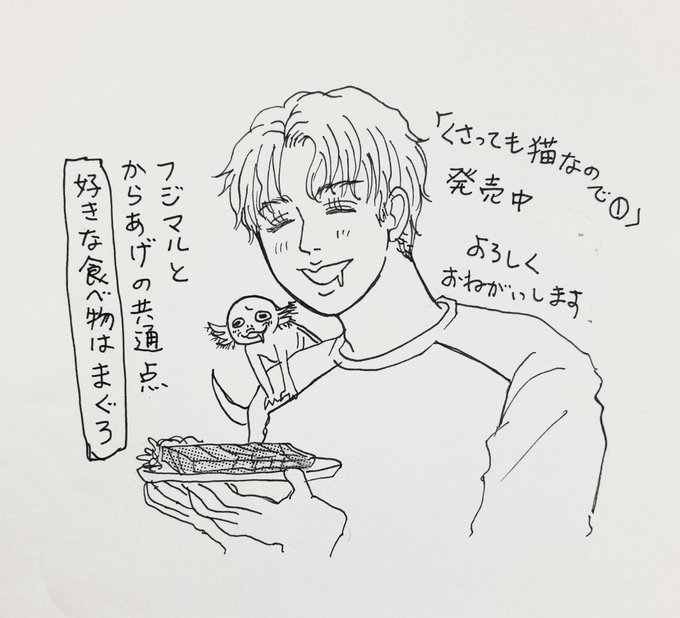 「くさっても猫なので①」
発売中
よろしく
おねがいします
フジマルと
からあげの共通点
好きな食べ物はまぐろ